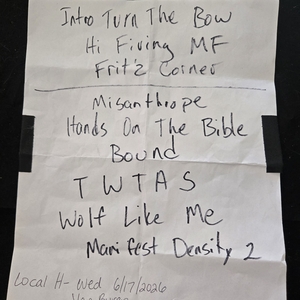 Intro Turn The Bow
Hi Fiving MF
Fritz Corner
Misanthrope
Hands On The Bible
Bound
T W T A S
Wolf Like Me
Manifest Density 2
Local H- Wed 6/17/2026